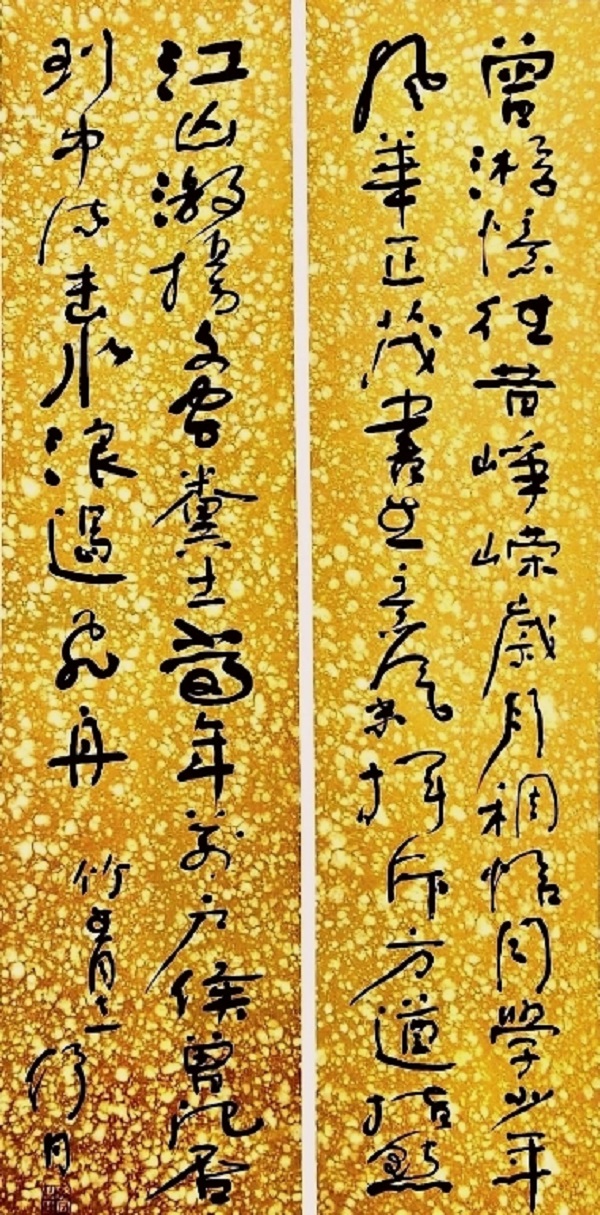 曾游憶往昔崢嶸歲月稠恰同學少年
風華正茂書生意氣揮斥方遒指點
江山激揚文字糞土當年萬戶侯曾記否
到中流擊水浪遏飛舟
竹青